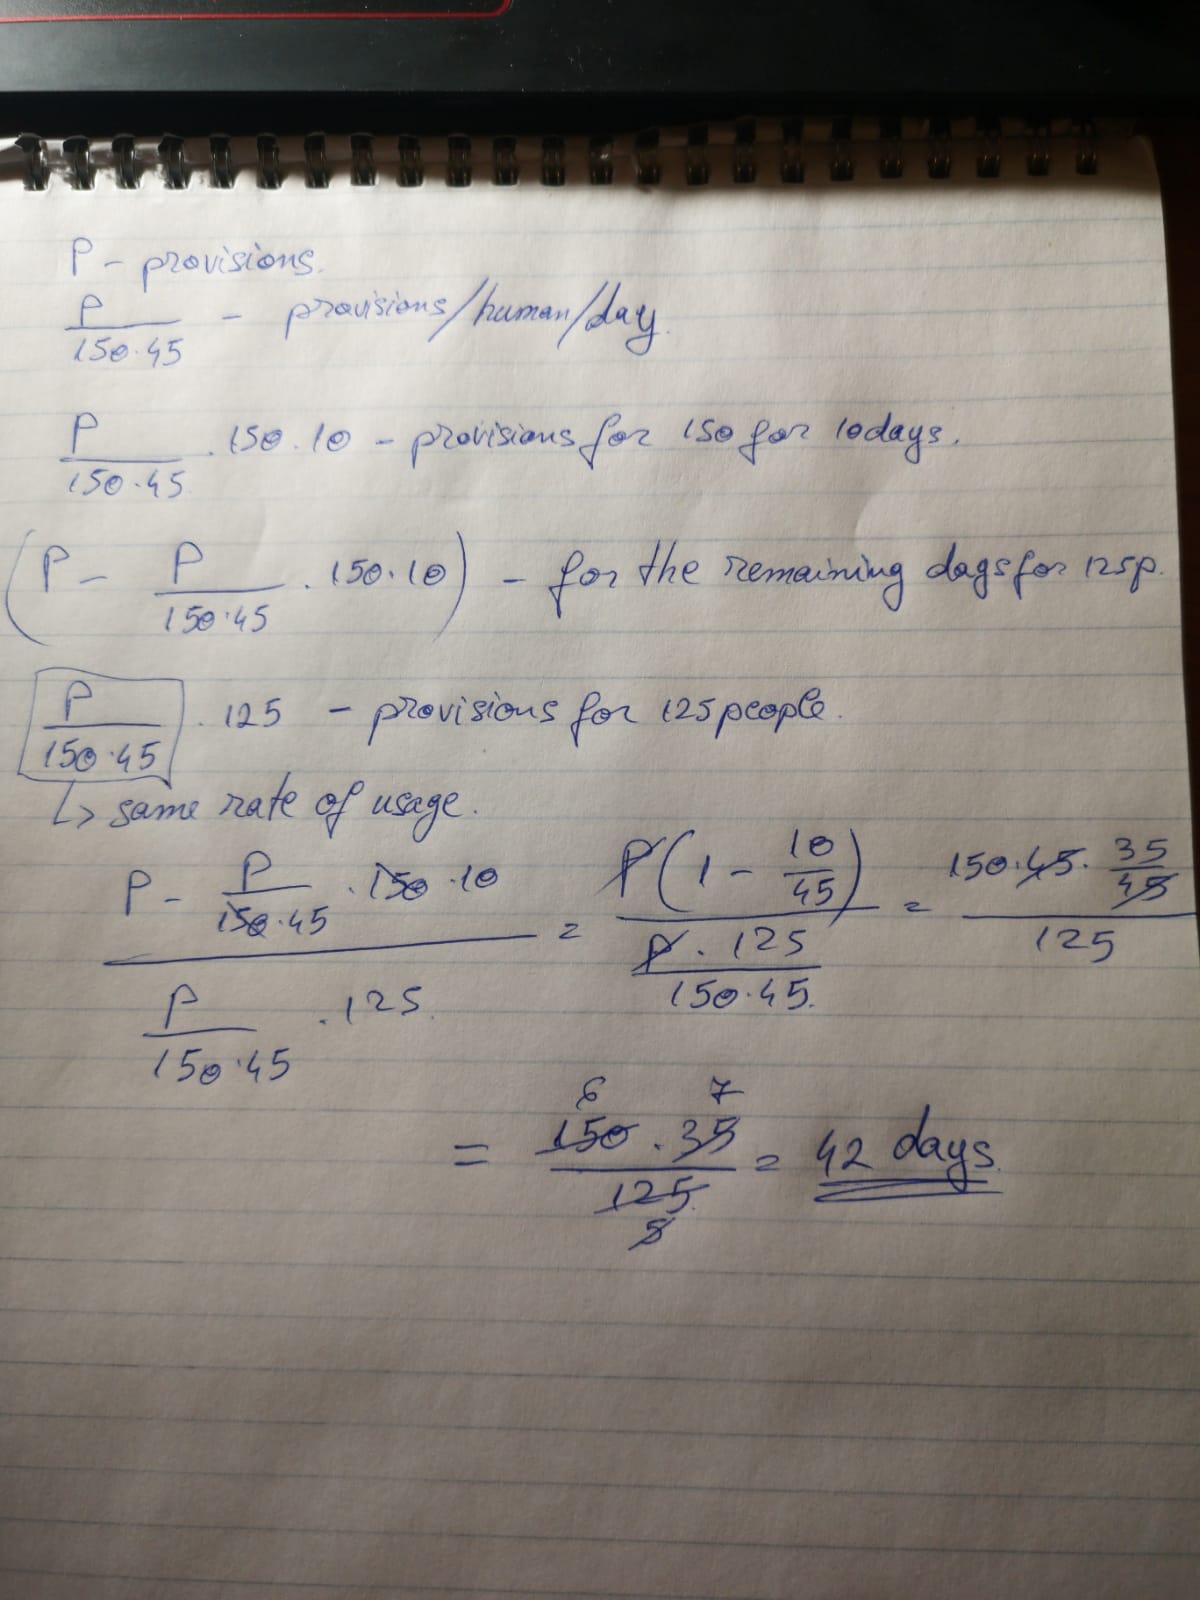 P - provisions.
P/(150·45) - provisions/human/day.
P/(150·45) · 150·10 - provisions for 150 for 10 days.
(P - P/(150·45) · 150·10) - for the remaining days for 125p.
P/(150·45) · 125 - provisions for 125 people.
↳ same rate of usage.
(P - P/(150·45) · 150·10) / (P/(150·45) · 125) = P(1 - 10/45) / (P·125/(150·45)) = (150·45·35/45) / 125
= 150·35/125 = 42 days.
6 7
5